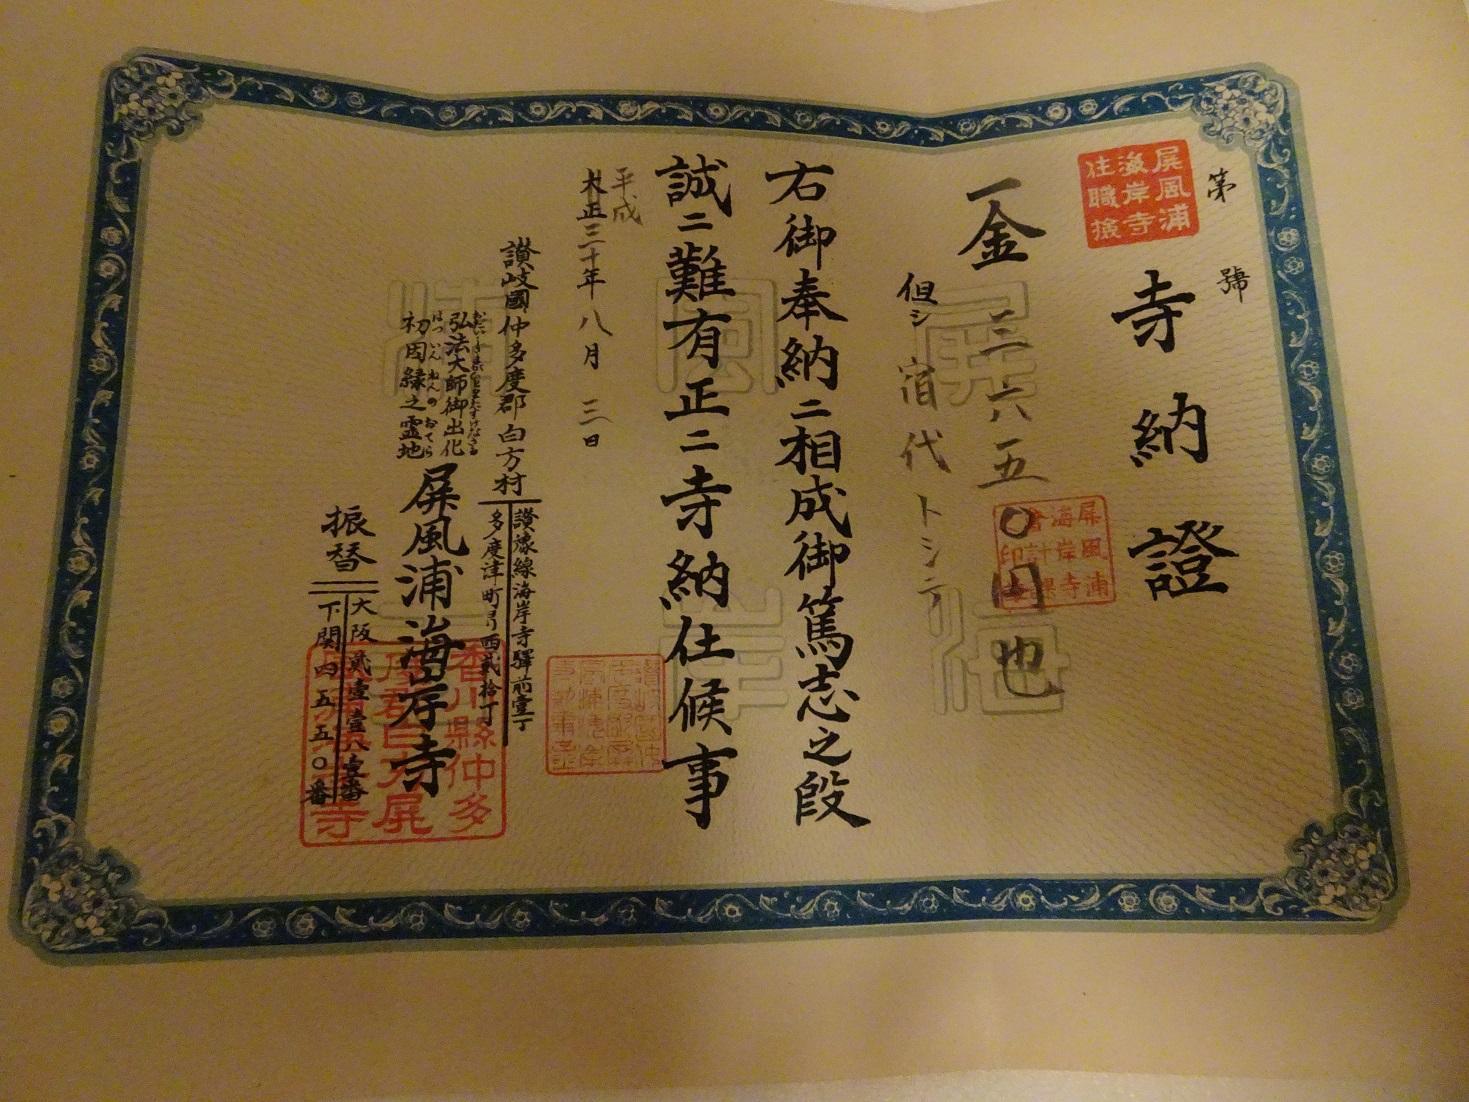 第 號
屏風浦
海岸寺
住職檢
寺納證
一金 三六五〇円也
屏風浦
海岸寺
會計課
印
但シ 宿代トシテ
右御奉納ニ相成御篤志之段
誠ニ難有正ニ寺納仕候事
平成
大正三十年八月三日
讃岐國仲多度郡白方村
讃豫線海岸寺驛前壹丁
多度津町ヨリ西貳拾丁
弘法大師御出化
初因縁之霊地
はついんねんのおてら
屏風浦海岸寺
振替
大阪貳壹壹八壹番
下関四五五〇番
香川縣仲多
度郡白方屏
寺
屏風浦
海岸